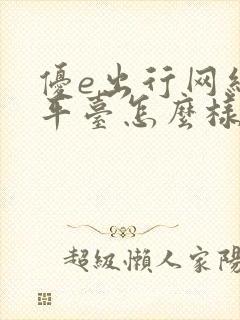 優e出行网約
平臺怎麼樣
超級懶人家陽